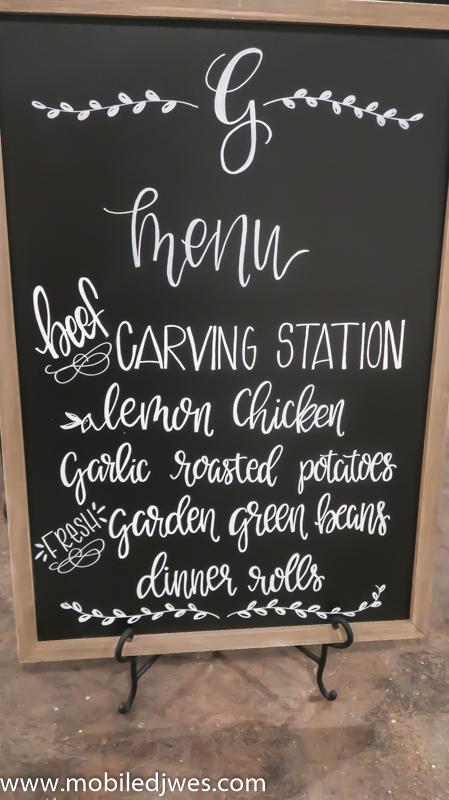 G
menu
beef CARVING STATION
lemon Chicken
Garlic roasted potatoes
FRESH garden green beans
dinner rolls
www.mobiledjwes.com